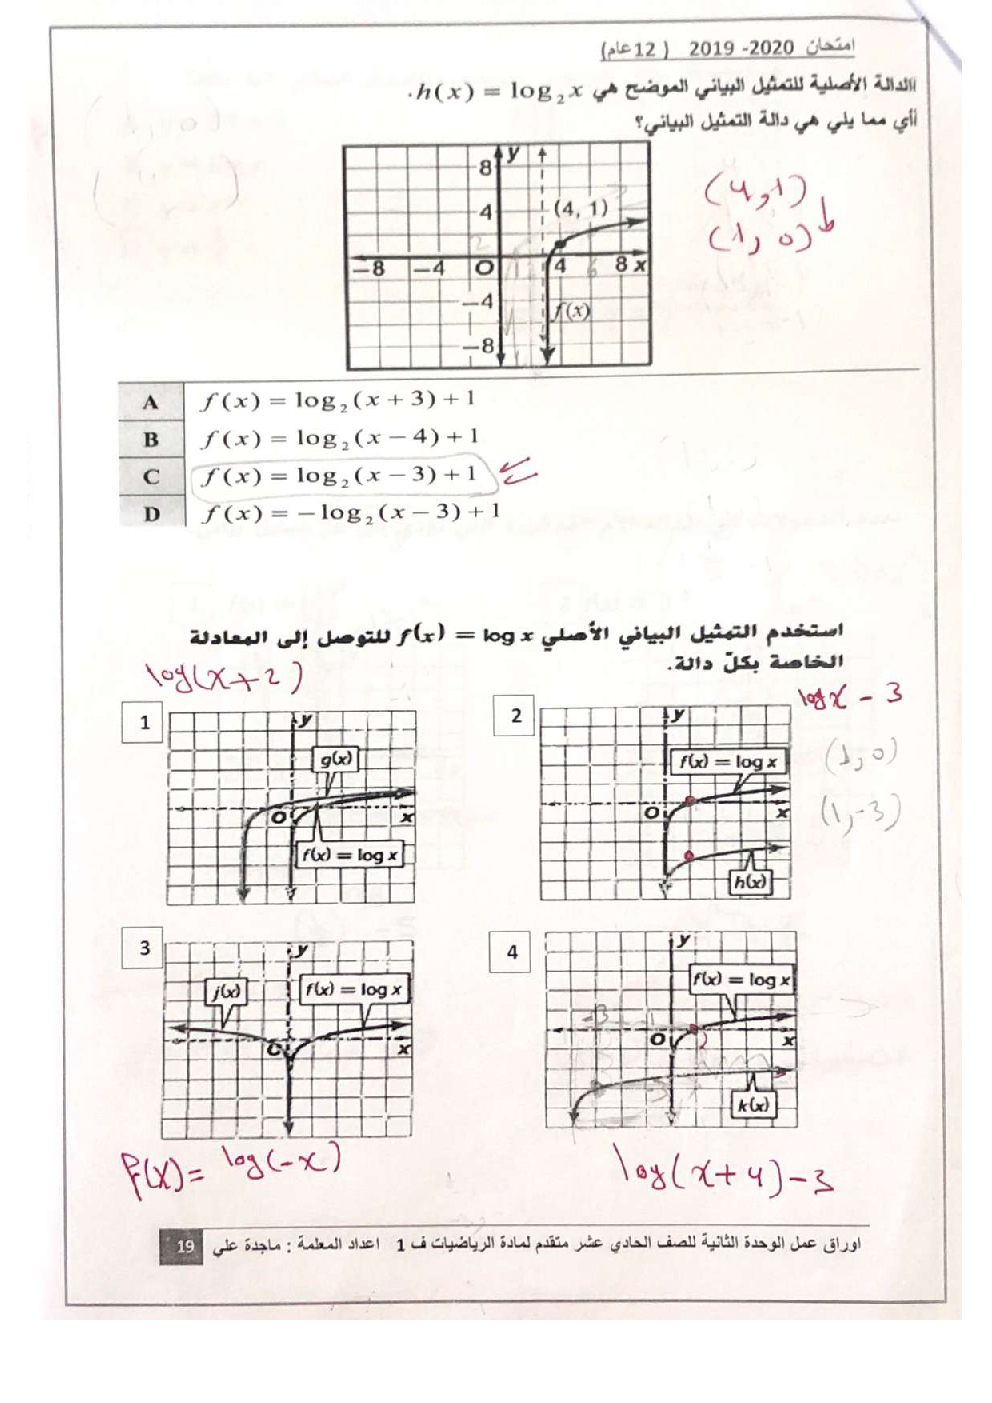 امتحان 2020- 2019 ( 12عام)
الدالة الأصلية للتمثيل البياني الموضح هي h(x) = log₂ x.
أي مما يلي هي دالة التمثيل البياني؟
y
8
4
(4, 1)
-8 -4 O 4 8 x
-4
f(x)
-8
(4,1)
(1,0)
A f(x) = log₂(x + 3) + 1
B f(x) = log₂(x − 4) + 1
C f(x) = log₂(x − 3) + 1
D f(x) = −log₂(x − 3) + 1
استخدم التمثيل البياني الأصلي f(x) = log x للتوصل إلى المعادلة
الخاصة بكلّ دالة.
log(x+2)
1
y
g(x)
O
x
f(x) = log x
2
logx - 3
y
f(x) = log x
O
x
h(x)
(1,0)
(1,-3)
3
y
j(x)
f(x) = log x
x
f(x)= log(-x)
4
y
f(x) = log x
O
x
k(x)
log(x+4)-3
اوراق عمل الوحدة الثانية للصف الحادي عشر متقدم لمادة الرياضيات ف 1 اعداد المعلمة : ماجدة علي 19